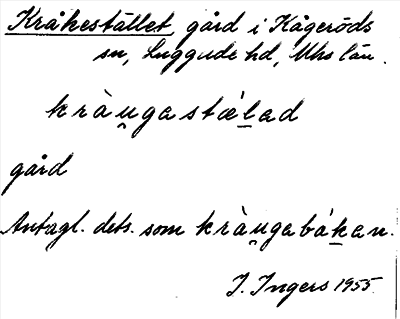 Kråkestället, gård i Kågeröds
sn, Luggude hd, Mhs län.
kràu̯gastáḻad
gård
Antagl. dets. som kràu̯gabáḵan.
I. Ingers 1955.